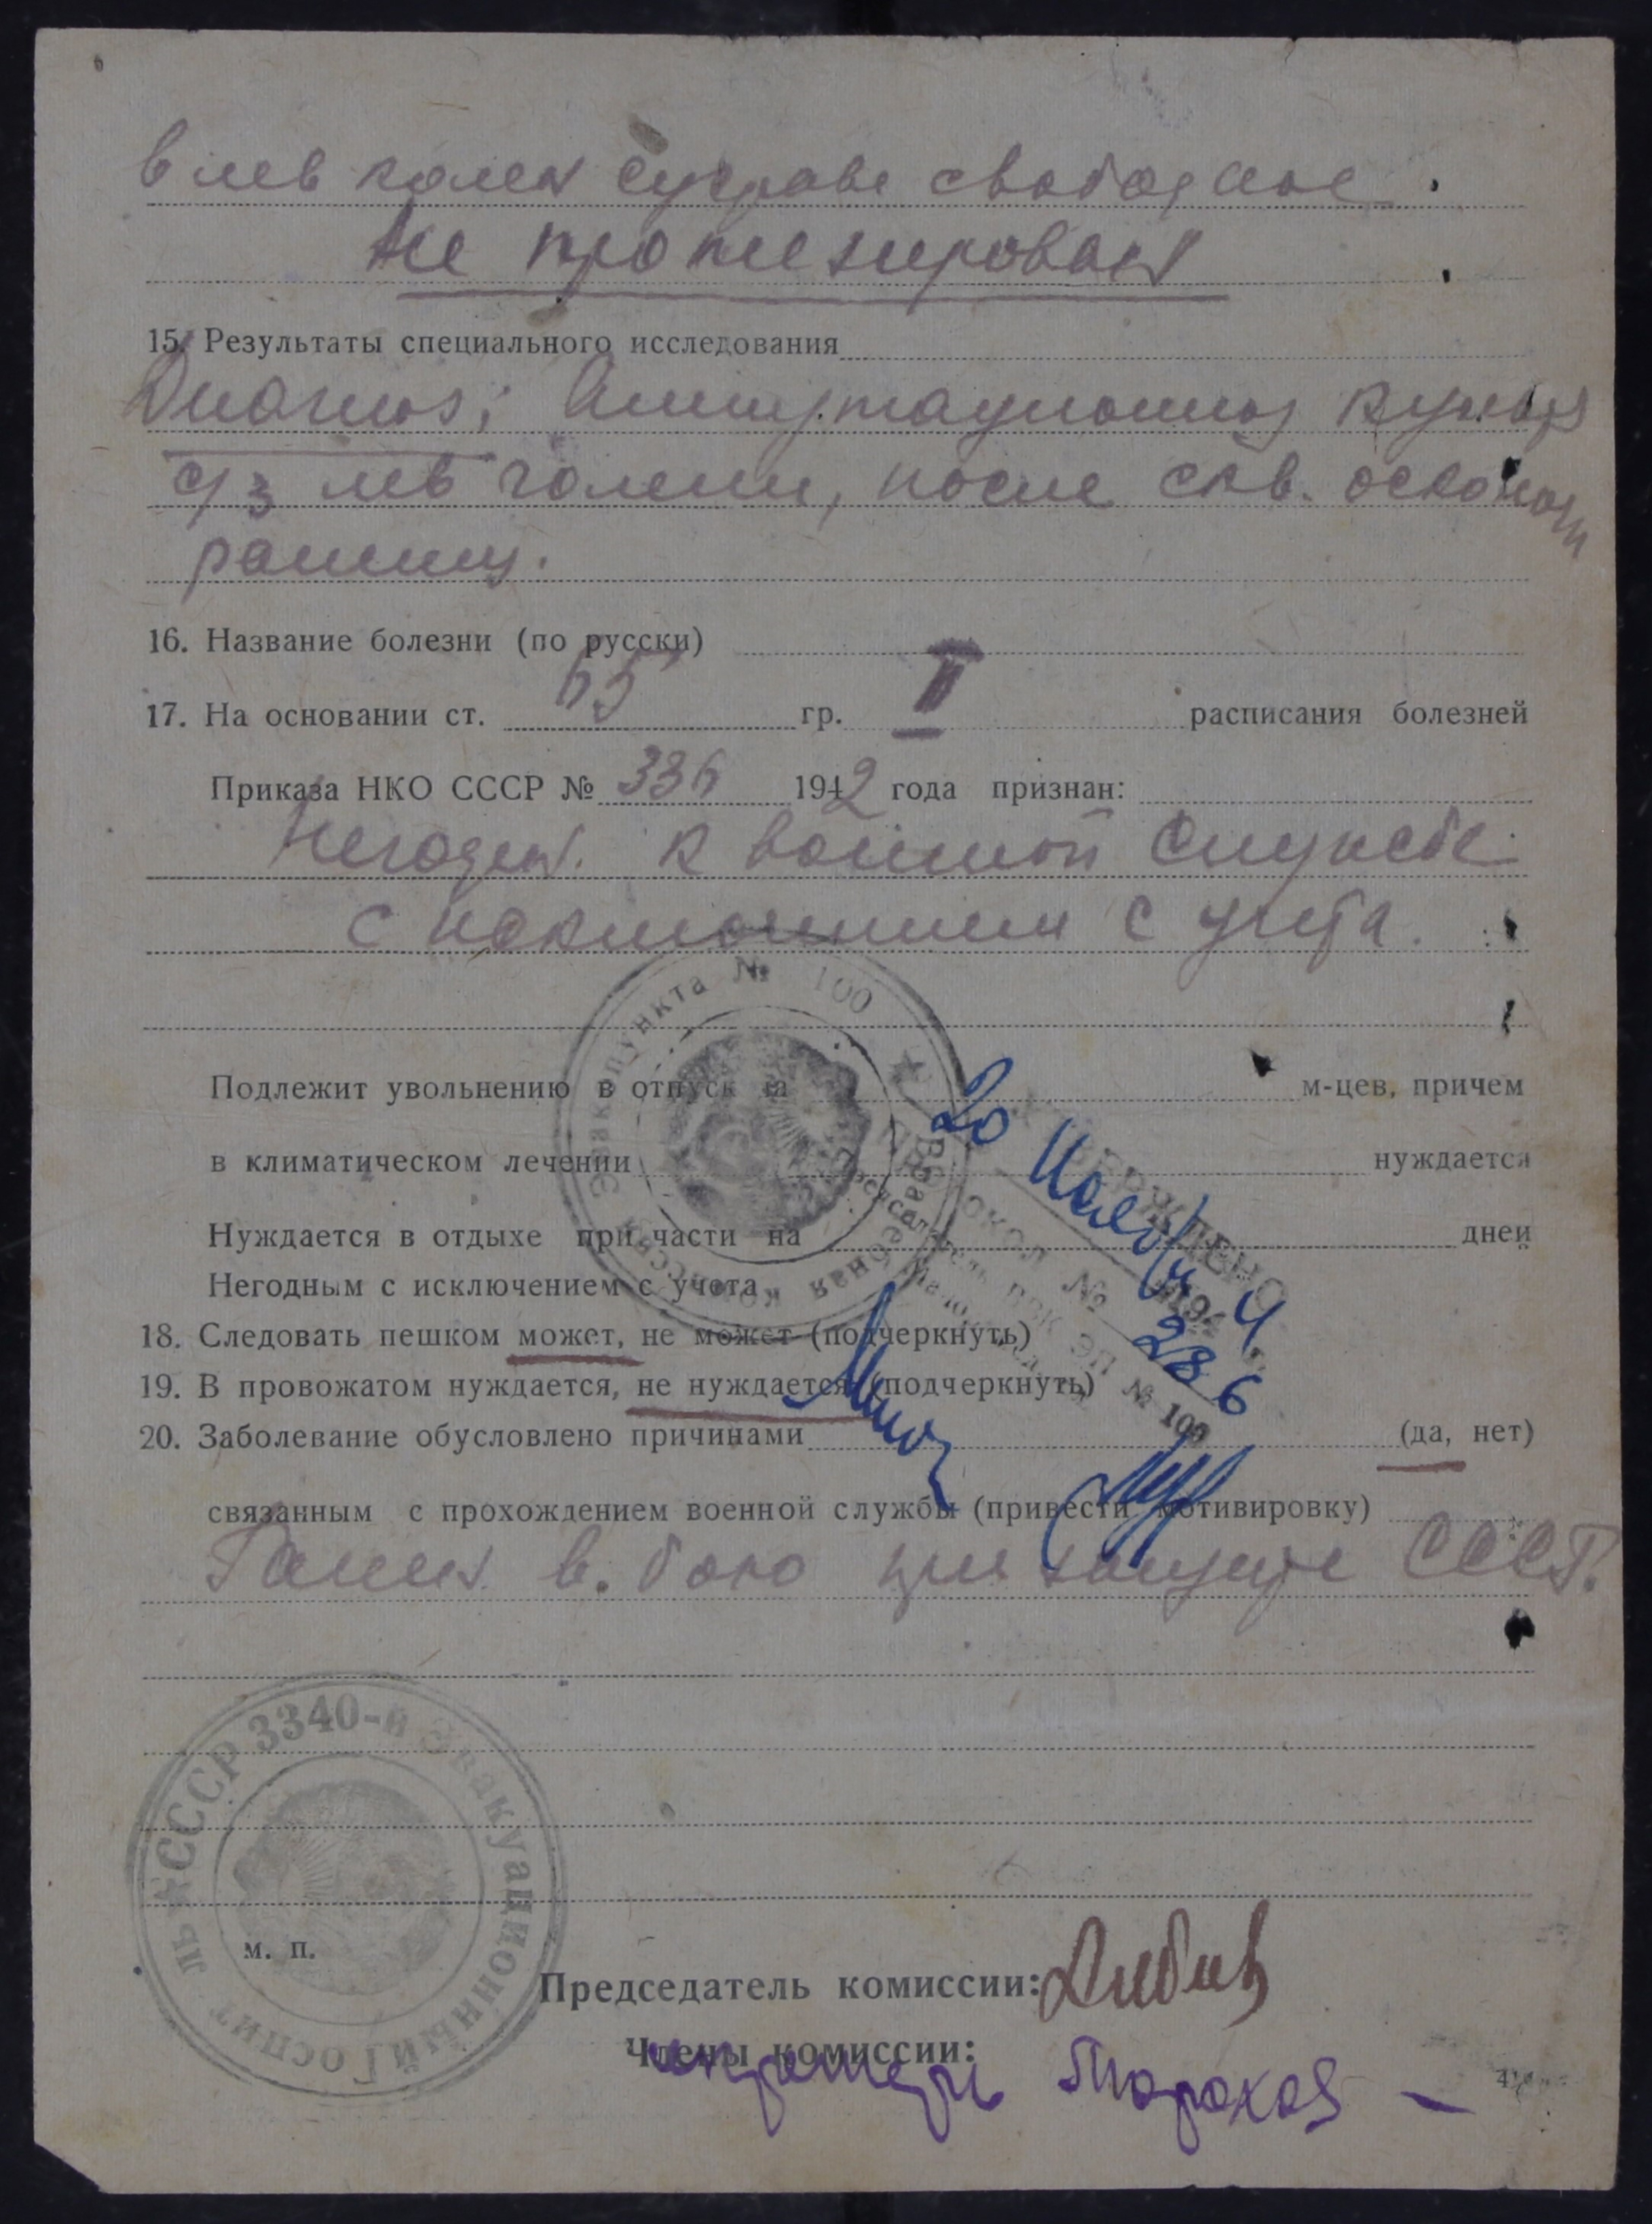 в лев колен суставе свободное.
Не протезирован
15. Результаты специального исследования
Диагноз: Ампутационная культя
с/з лев голени, после скв. осколочн
ранения.
16. Название болезни (по русски)
17. На основании ст. 65 гр. II расписания болезней
Приказа НКО СССР № 336 1942 года признан:
Негоден. к военной службе
с исключением с учета.
Подлежит увольнению в отпуск на м-цев, причем
в климатическом лечении нуждается
Нуждается в отдыхе при части на дней
Негодным с исключением с учета
18. Следовать пешком может, не может (подчеркнуть)
19. В провожатом нуждается, не нуждается (подчеркнуть)
20. Заболевание обусловлено причинами (да, нет)
связанным с прохождением военной службы (привести мотивировку)
Ранен в бою при защите СССР.
Эвакопункта № 100 Врачебная комиссия
УТВЕРЖДЕНО
20 Ноября 1944
Протокол № 286
Председатель ВВК ЭП № 100
СССР 3340-й Эвакуационный Госпиталь
м. п.
Председатель комиссии:
Члены комиссии:
секретарь